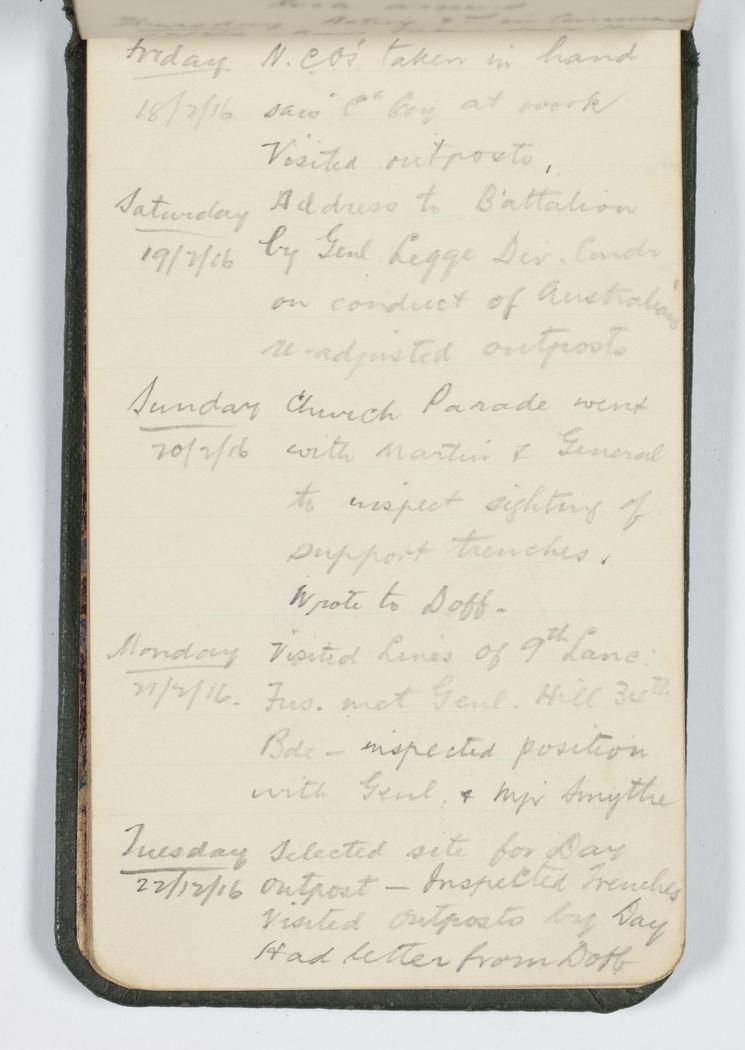 Thursday Acting 2nd in Command
Friday N.C.O's taken in hand
18/2/16 saw "C" Coy at work
Visited outposts,
Saturday Address to Battalion
19/2/16 by Genl Legge Div. Comdr
on conduct of Australians
re-adjusted outposts
Sunday Church Parade went
20/2/16 with Martin & General
to inspect sighting of
support trenches.
Wrote to Doff-
Monday Visited Lines of 9th Lanc.
21/2/16. Fus. met Genl. Hill 34th
Bde - inspected position
with Genl. & Mjr Smythe
Tuesday Selected site for Day
22/12/16 outpost - Inspected Trenches
Visited outposts by Day
Had letter from Doff